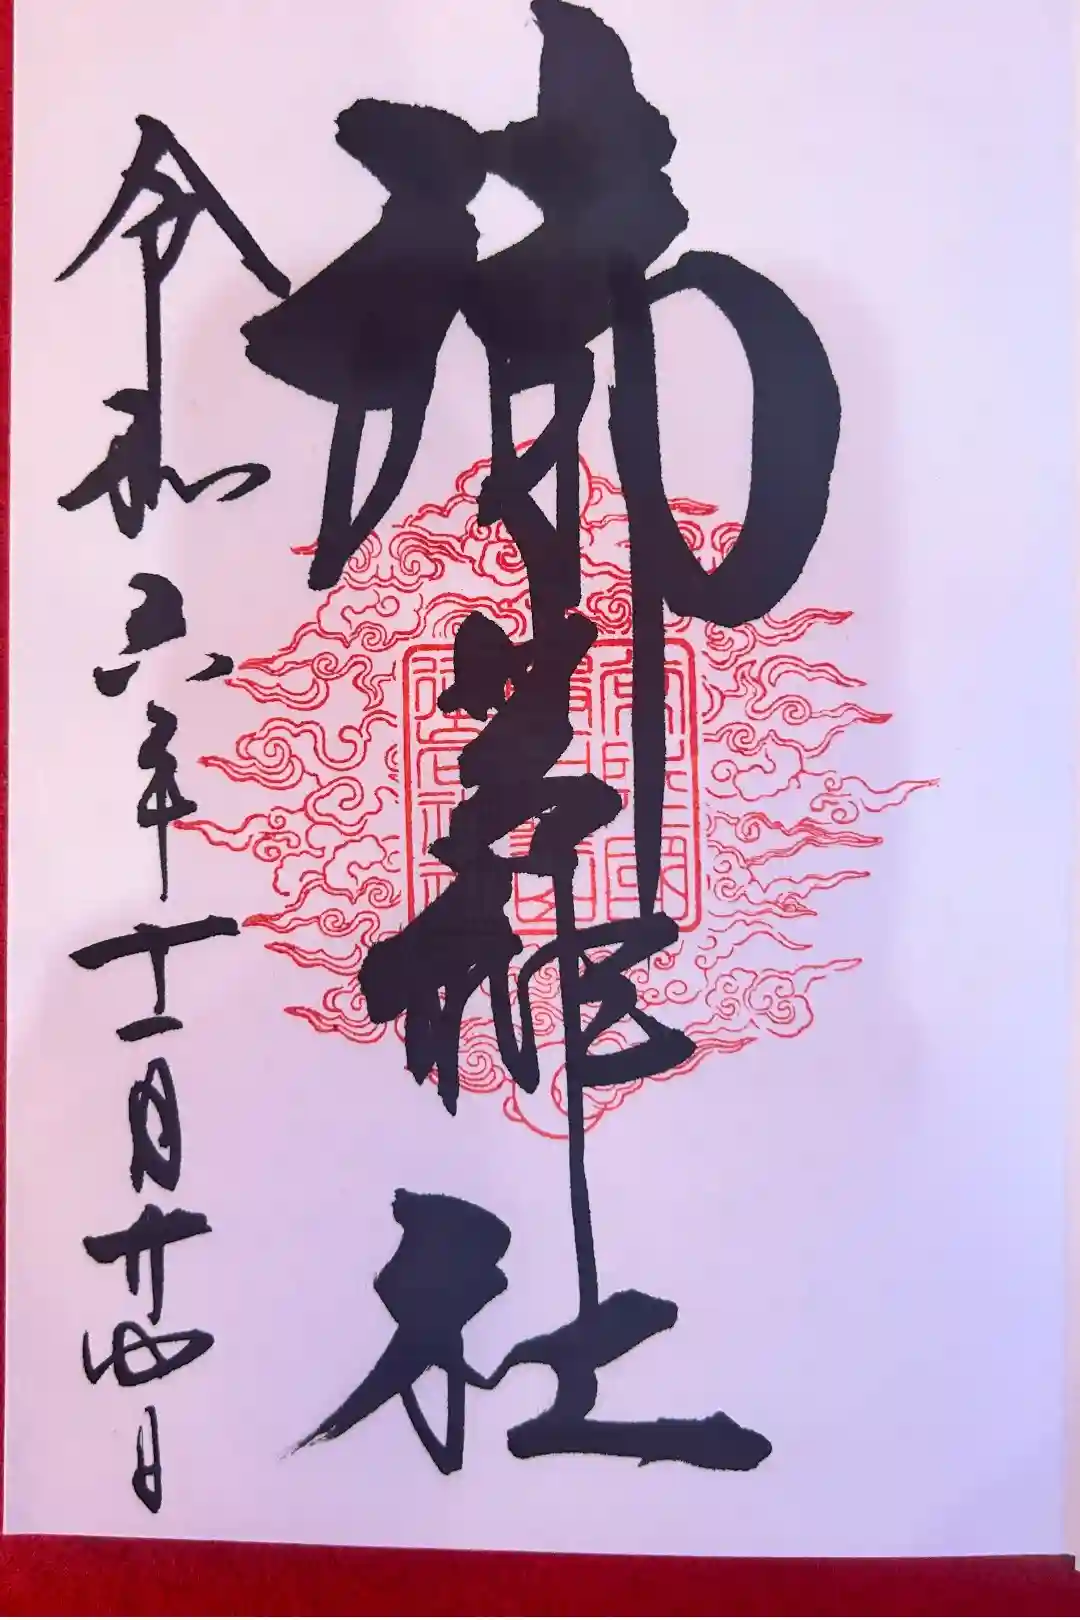 御岩神社
令和六年十一月廿四日